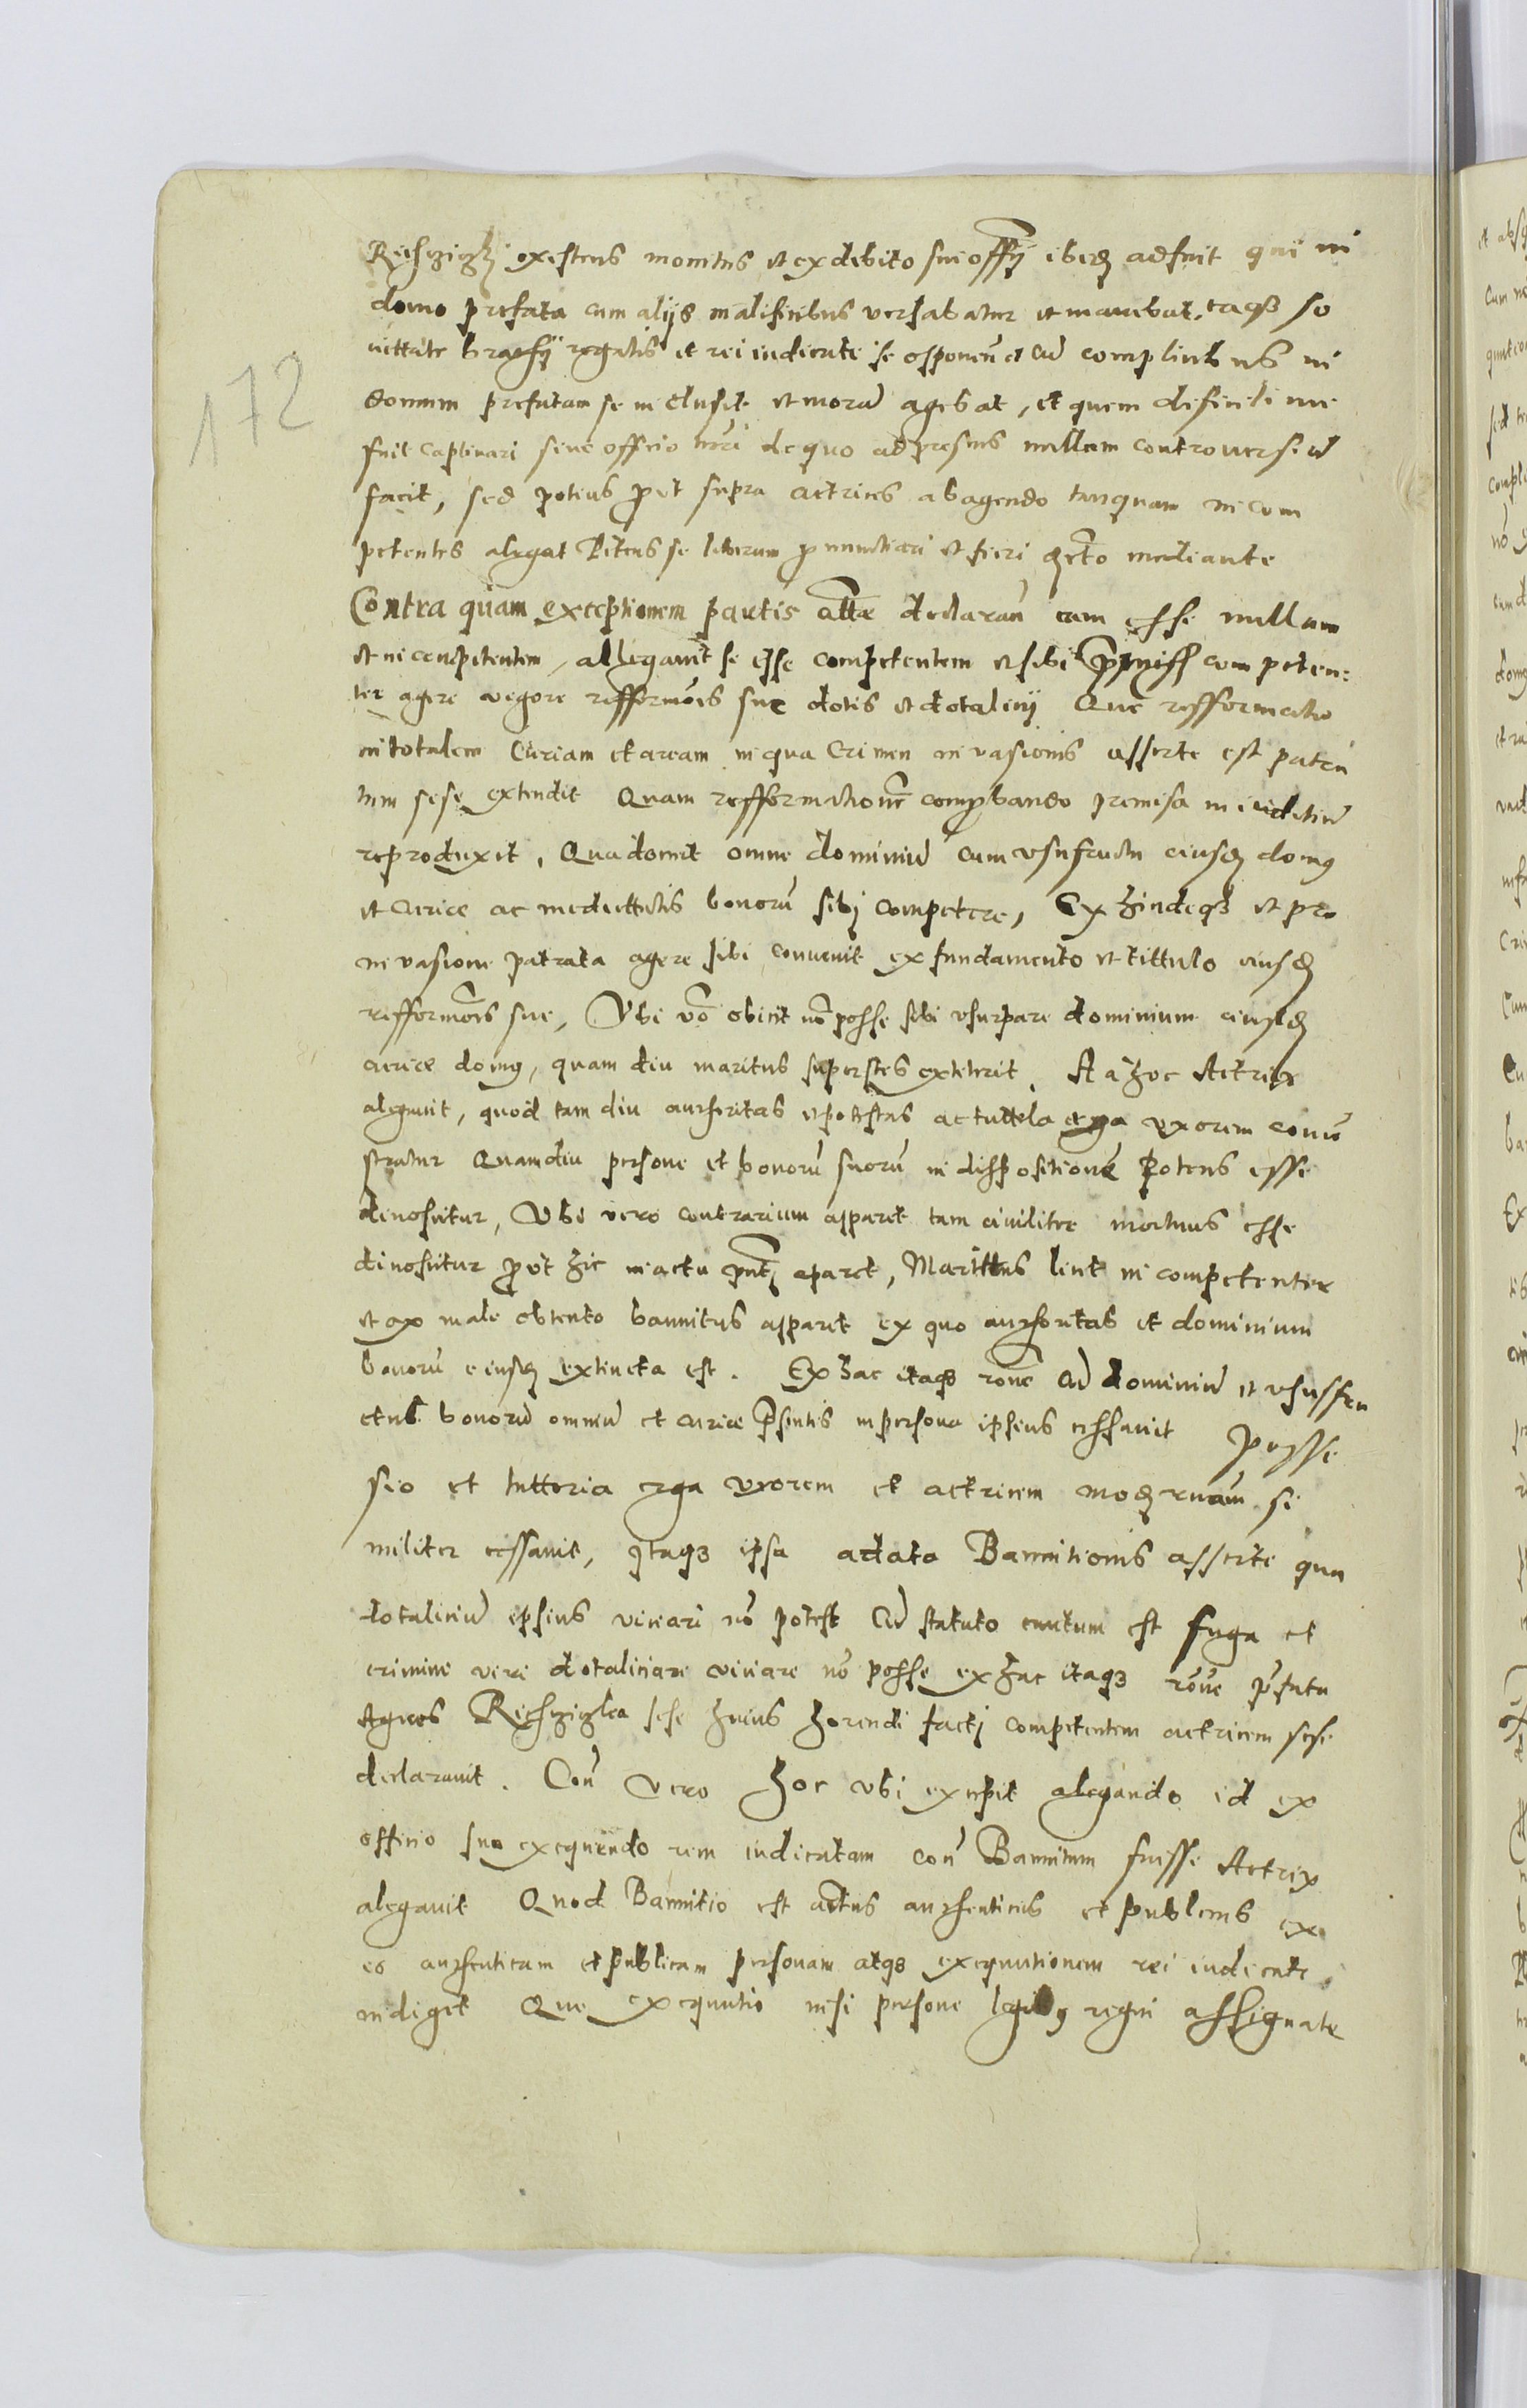 172
existens monitus et ex debito sui offij ibidem adfuit qui in
domo prefata cum alijs malificibus versabatur et manebat, eaqz
regalis et rei iudicate se opponens cum complicibus in
domum prefatam se inclusit et moram agebat, et quem
fuit captivari sine officio de quo ad presens nullam controversiam
facit, sed potius prout supra actrices ab agendo tanquam incom
petentes alegat Petens se liberum pronunctiari et fieri mediante
Contra quam exceptionem partis declarans eam esse nullam
et incompetentem, allegavit se esse competentem et sibi competen=
ter agere vigore refformationis sue dotis et dotalicij Que refformatio
in totalem Curiam et aream in qua Crimen invasionis asserte est patra
tum sese extendit Quam refformationem comprobando premisa in iuditium
reproduxit, Qua docuit omne dominium cum usufructu eiusdem domus
et curiae ac medietatis bonorum sibj competere, Exhindeqz et pro
invasione patrata agere sibi convenit ex fundamento et tittulo eiusdem
refformationis sue, Ubi vero obicit non posse sibi usurpare dominium eiusdem
curiae domus, quam diu maritus superstes extiterit, Ad hoc Actrix
alegavit, quod tam diu authoritas et potestas ac tuttela erga uxorem
stratur Quamdiu persone et bonorum suorum in dispositione potens esse
dinoscitur, Ubi vero contrarium apparet tam civiliter mortuus esse
dinoscitur prout hic in actu pntj aparet, Marittus licet incompetenter
et ex male obtento bannitus apparet ex quo authoritas et dominium
bonorum eiusdem extincta est. Ex hac itaqz rone ad dominium et ususfru
ctus bonorum omnium et curiae presentis in persona ipsius cessavit posse
sio et tuttoria erga uxorem et actricem modernam si
militer cessavit, Itaqz ipsa a data Bannitionis asserte qua
dotalicium ipsius viciari non potest Cum statuto cautum est fuga et
crimine viri dotaliciare viciare non posse ex hac itaqz rone prefata
Agnes sese huius horendi factj competentem actricem sese
declaravit. Con vero hoc ubi excepit alegando id ex
officio suo exequendo rem iudicatam con Bannitum fuisse Actrix
alegavit Quod Bannitio est actus authenticus et publicus ex
eo authenticam et publicam personam atqz exequutionem rei iudicate
indiget Que exequutio nisi persone regni assignate